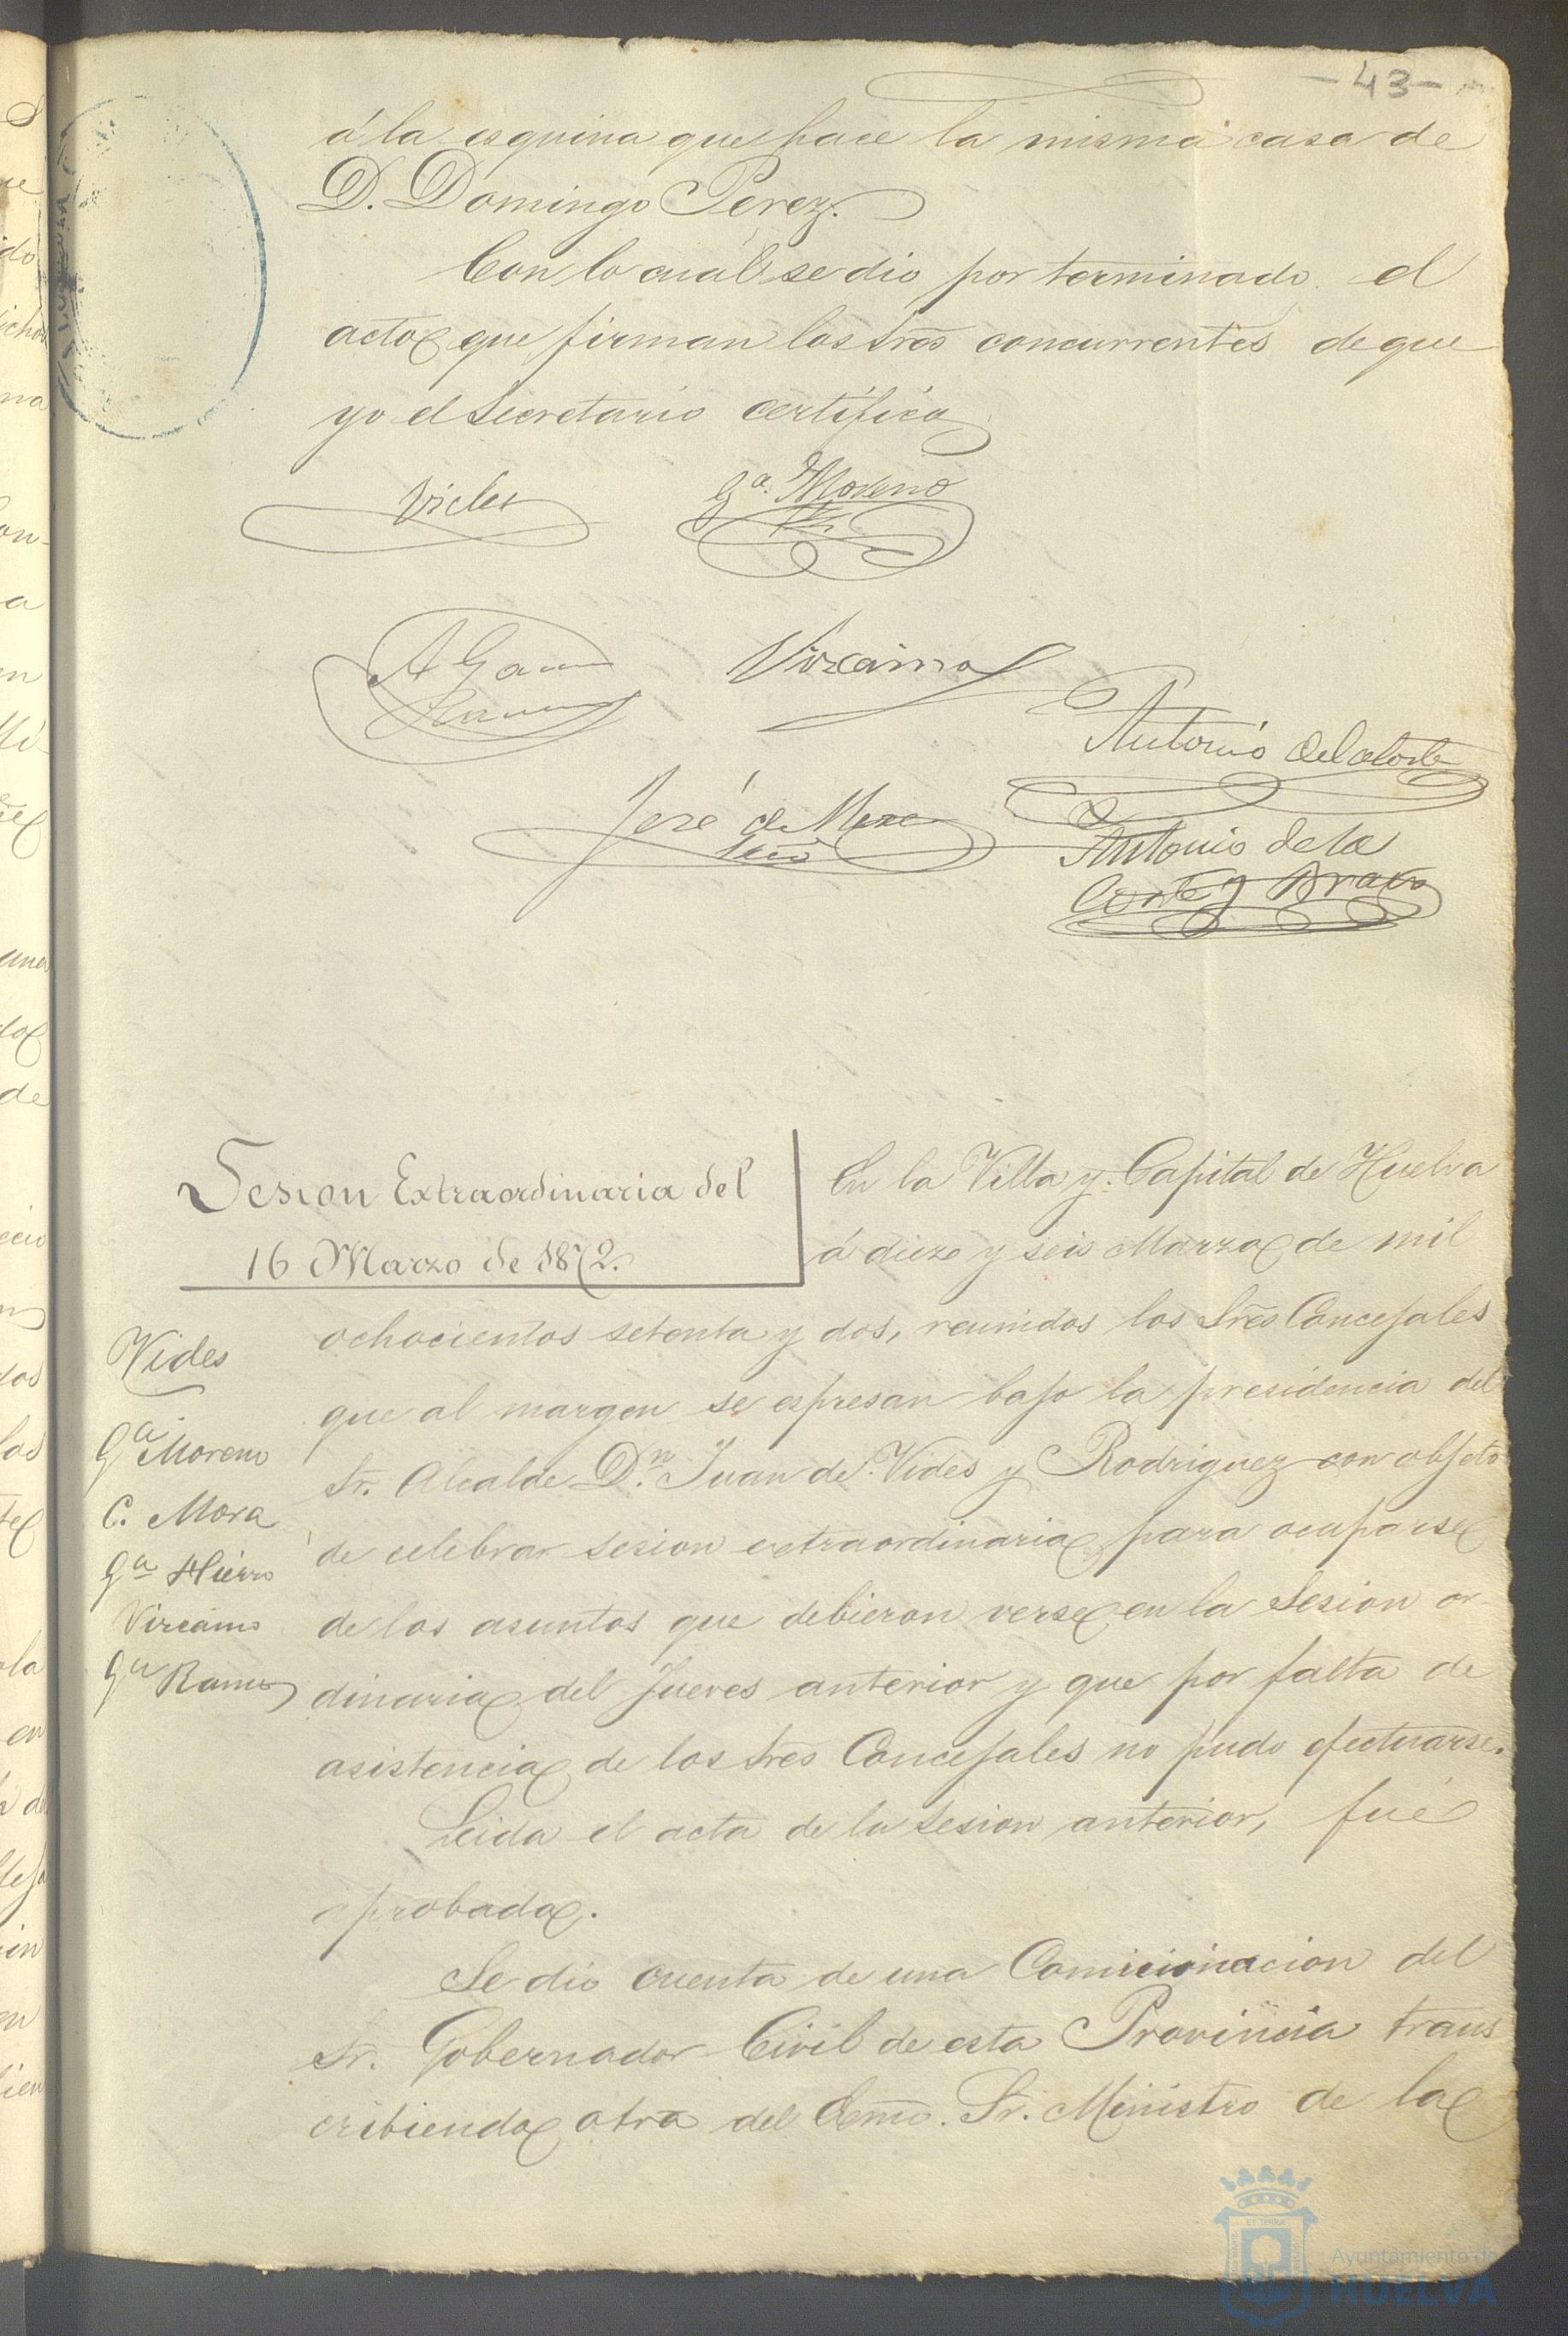 -43-
á la esquina que hace la misma casa de
D. Domingo Perez.
Con lo cual se dio por terminado el
acto que firman los Sres concurrentes de que
yo el Secretario certifico
Vides
Gª. Moreno
A Garcia
Ramos
Vizcaino
Antonio de la Corte
José de Meza
Antonio de la
Corte y Bravo
Sesion Extraordinaria del
16 Marzo de 1872.
En la Villa y Capital de Huelva
á diez y seis Marzo de mil
ochocientos setenta y dos, reunidos los Sres Concejales
que al margen se espresan bajo la presidencia del
Sr. Alcalde Dn. Juan de Vides y Rodriguez con objeto
de celebrar sesion extraordinaria para ocuparse
de los asuntos que debieron verse en la Sesion or-
dinaria del Jueves anterior y que por falta de
asistencia de los Sres Concejales no pudo efectuarse.
Leida el acta de la Sesion anterior, fué
aprobada.
Se dió cuenta de una Comicionacion del
Sr. Gobernador Civil de esta Provincia trans
cribiendo otra del Exmo. Sr. Ministro de la
Vides
Gª Moreno
C. Mora
Gª Hierro
Vizcaino
Gª Ramos
Ayuntamiento de
HUELVA